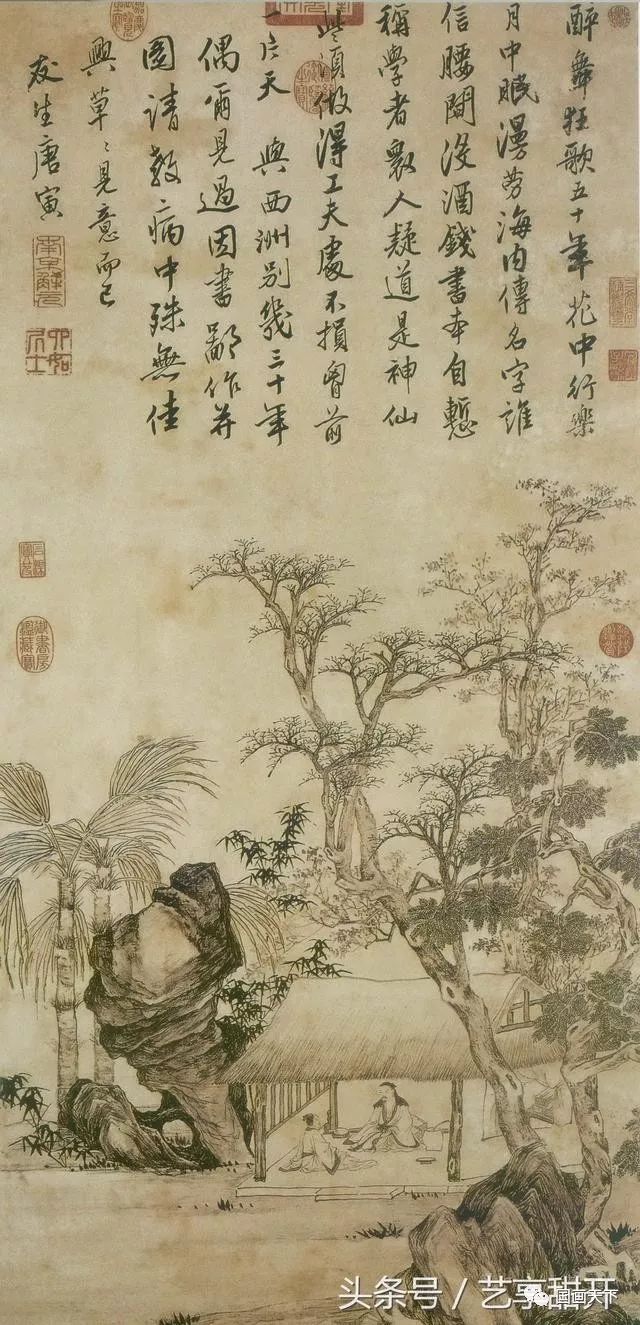 醉舞狂歌五十年花中行樂
月中眠漫勞海内傳名字誰
信腰間没酒錢書本自慙
稱學者衆人疑道是神仙
些須做得工夫處不損胷前
一片天 與西洲别幾三十年
偶爾見過因書鄙作并
圖請教病中殊無佳
興草〻見意而已
友生唐寅
南京解元
六如居士
御書房鑑藏寶
头条号 / 艺享甜开
国画天下